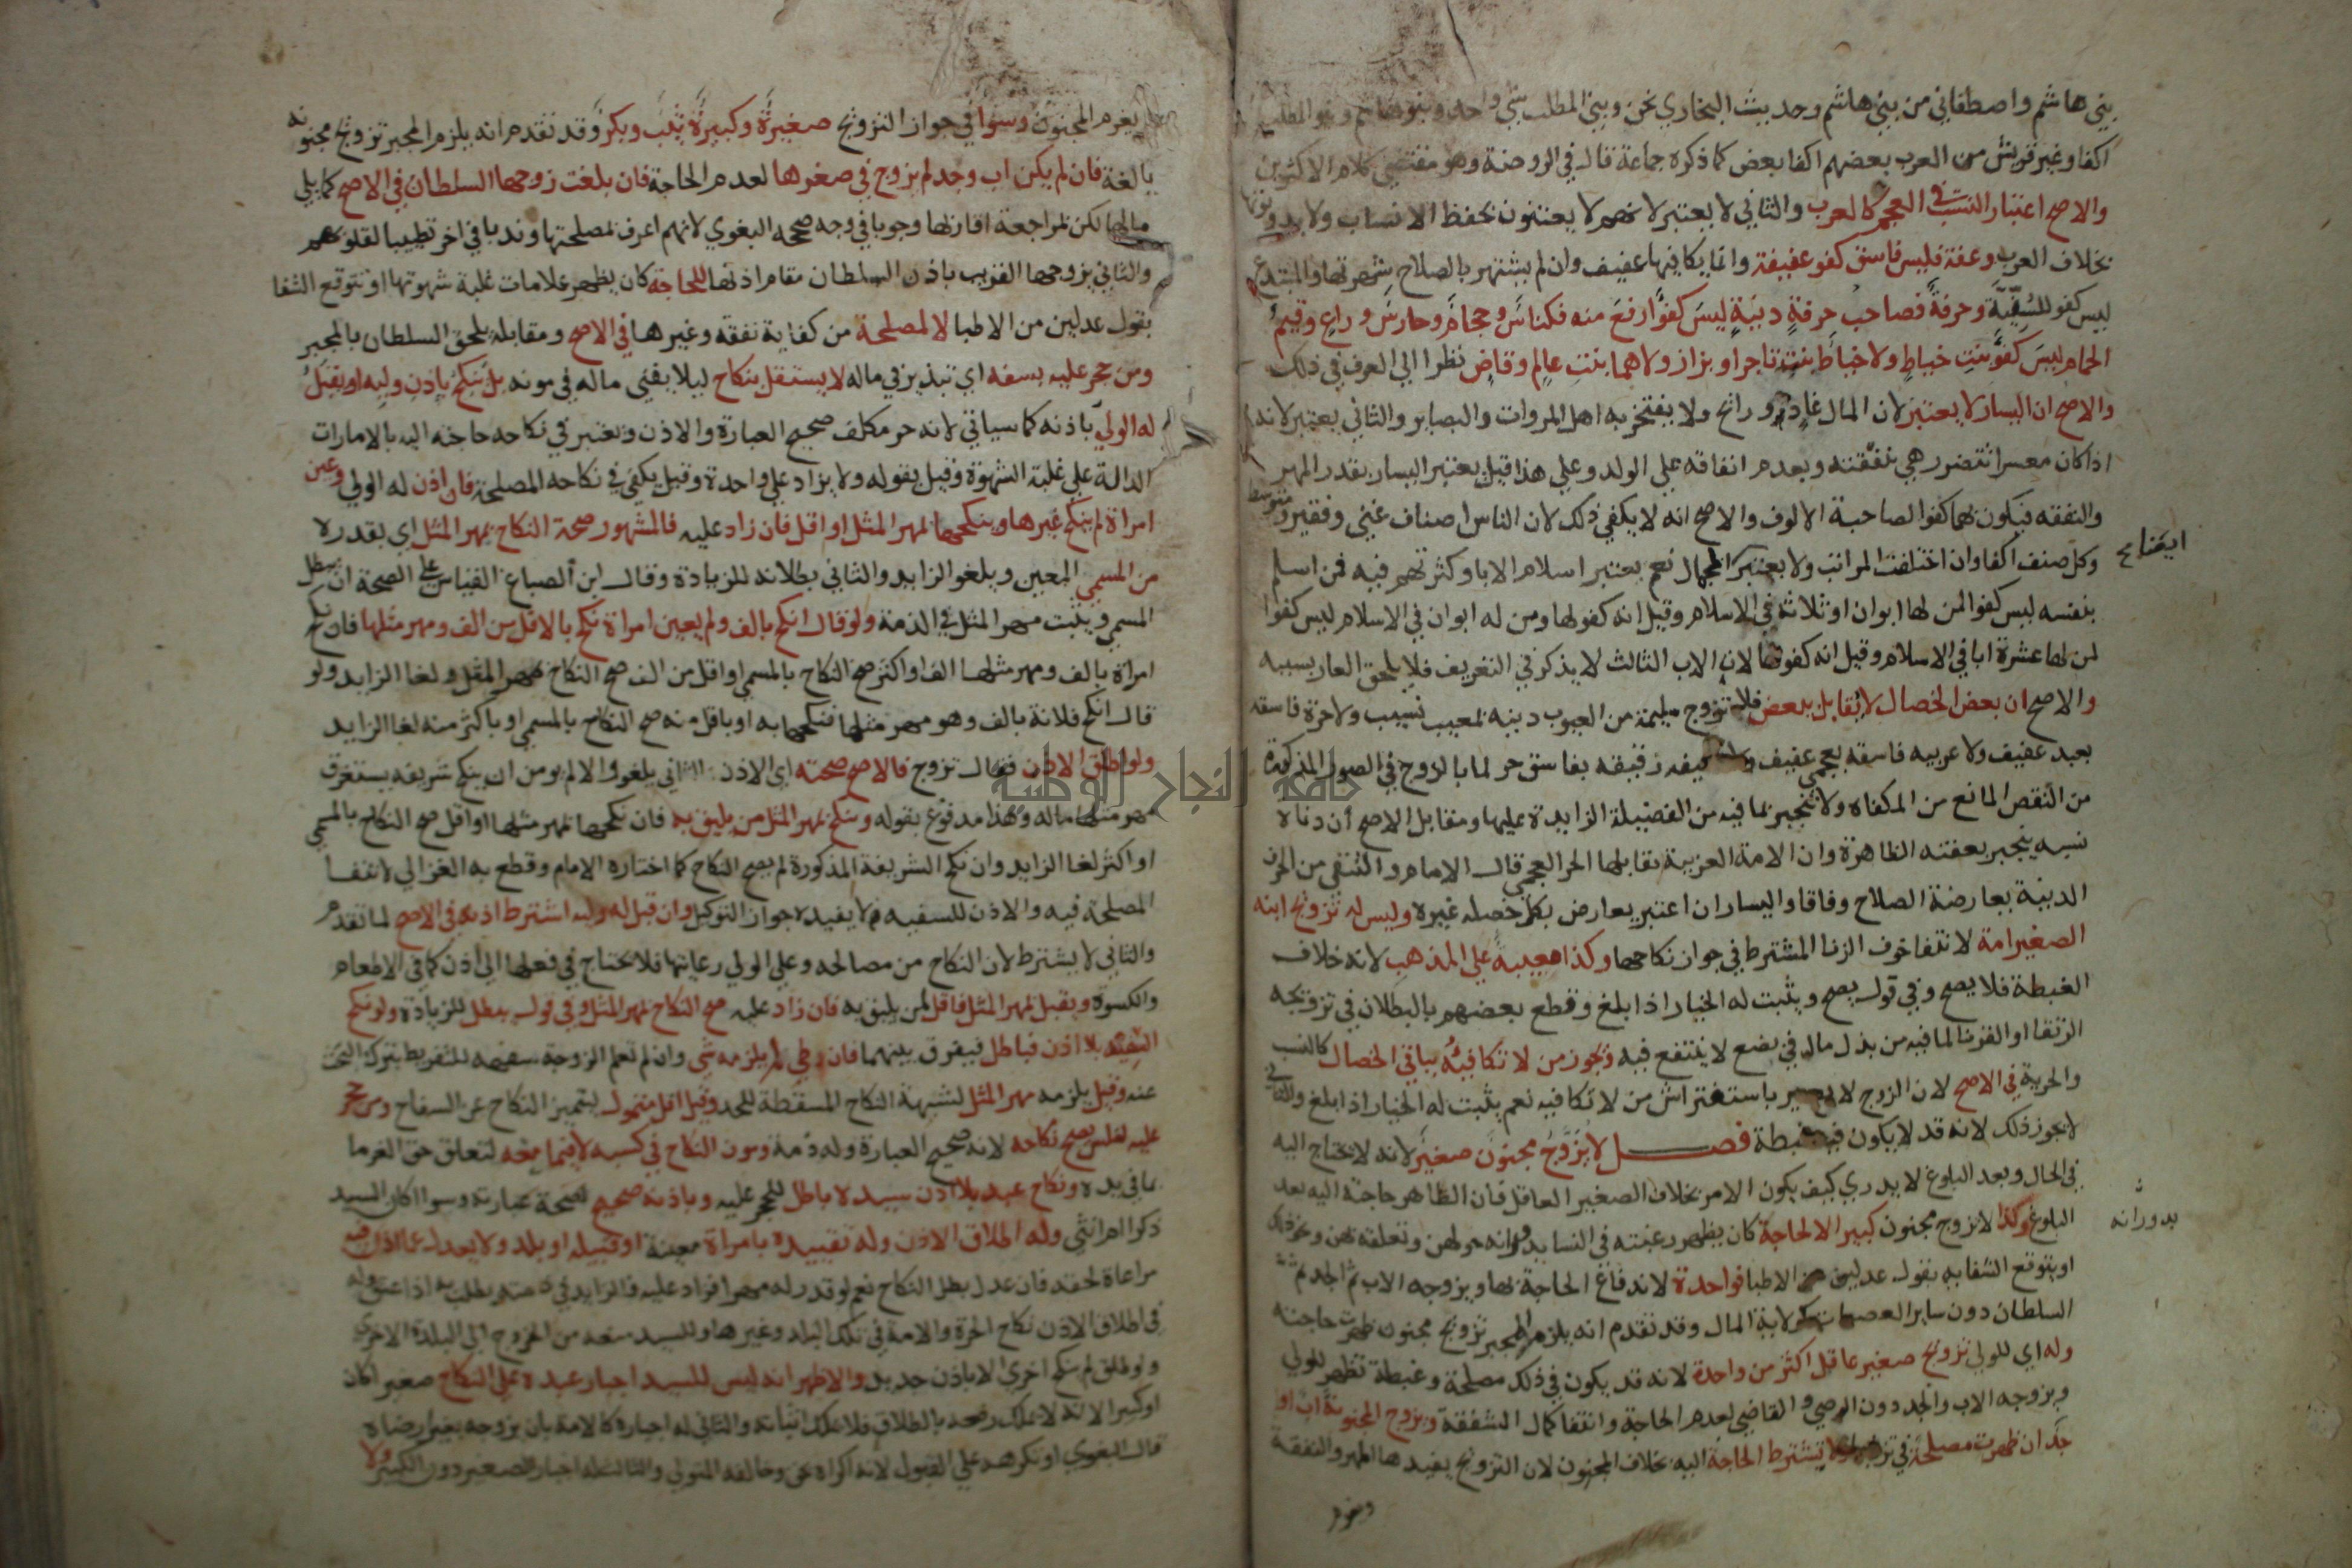 بني هاشم واصطفاني من بني هاشم وحديث البخاري نحن وبني المطلب شي واحد وبنو هاشم وبنو المطلب
اكفا وغير قريش من العرب بعضهم اكفا بعض كما ذكره جماعة قال في الروضة وهو مقتضي كلام الاكثرين
والاصح اعتبار النسب في العجم كالعرب والثاني لا يعتبر لانهم لا يعتنون بحفظ الانساب ولا يدونونها
بخلاف العرب وعفة فليس فاسق كفو عفيفة وانما يكافيها عفيف وان لم يشتهر بالصلاح شهرتها والمبتدع
ليس كفو للسنية وحرفة فصاحب حرفة دنية ليس كفوا ارفع منه فكناس وحجام وحارس وراع وقيم
الحمام ليس كفو بنت خياط ولا خياط بنت تاجر او بزاز ولا هما بنت عالم وقاض نظرا الي العرف في ذلك
والاصح ان اليسار لا يعتبر لان المال غاد ورايح ولا يفتخر به اهل المروات والبصاير والثاني يعتبر لانه
اذا كان معسرا تتضرر هي بنفقته وبعدم انفاقه علي الولد وعلي هذا قيل يعتبر اليسار بقدر المهر
والنفقه فيكون بهما كفوا لصاحبة الالوف والاصح انه لا يكفي ذلك لان الناس اصناف غني وفقير ومتوسط
وكل صنف اكفا وان اختلفت المراتب ولا يعتبر الجمال نعم يعتبر اسلام الابا وكثرتهم فيه فمن اسلم
بنفسه ليس كفوا لمن لها ابوان او ثلاثة في الاسلام وقيل انه كفو لها ومن له ابوان في الاسلام ليس كفوا
لمن لها عشرة ابا في الاسلام وقيل انه كفو لها لان الاب الثالث لا يذكر في التعريف فلا يلحق العار بسببه
والاصح ان بعض الخصال لا يقابل ببعض فلا تزوج سليمة من العيوب دنيه بمعيب نسيب ولا حرة فاسقه
بعبد عفيف ولا عربيه فاسقه بعجمي عفيف ولا عفيفه رقيقه بفاسق حر لما بالزوج في الصور المذكورة
من النقص المانع من المكفاه ولا ينجبر بما فيه من الفضيلة الزايدة عليها ومقابل الاصح ان دناة
نسبه ينجبر بعفته الظاهرة وان الامة العربية يقابلها الحر العجمي قال الامام والتنقي من الحرف
الدنية يعارضه الصلاح وفاقا واليسار ان اعتبر يعارض بكل خصله غيره وليس له تزويج ابنه
الصغير امة لانتفا خوف الزنا المشترط في جواز نكاحها وكذا معيبة علي المذهب لانه خلاف
الغبطة فلا يصح وفي قول يصح ويثبت له الخيار اذا بلغ وقطع بعضهم بالبطلان في تزويجه
الرتقا او القرنا لما فيه من بذل مال في بضع لا ينتفع فيه وتجوز من لا تكافيه بباقي الخصال كالنسب
والحرية في الاصح لان الزوج لا يعير باستفراش من لا تكافيه نعم يثبت له الخيار اذا بلغ والثاني
لا يجوز ذلك لانه قد لا يكون فيه غبطة فصل لا يزوج مجنون صغير لانه لا يحتاج اليه
في الحال وبعد البلوغ لا يدري كيف يكون الامر بخلاف الصغير العاقل فان الظاهر حاجته اليه بعد
البلوغ وكذا لا يزوج مجنون كبير الا لحاجة كان يظهر رغبته في النسا بدورانه حولهن وتعلقه بهن ونحو ذلك
او يتوقع الشفا به بقول عدلين من الاطبا فواحدة لاندفاع الحاجة بها ويزوجه الاب ثم الجد ثم
السلطان دون ساير العصبات كولاية المال وقد تقدم انه يلزم المجبر تزويج مجنون ظهرت حاجته
وله اي للولي تزويج صغير عاقل اكثر من واحدة لانه قد يكون في ذلك مصلحة وغبطة تظهر للولي
ويزوجه الاب والجد دون الوصي والقاضي لعدم الحاجة وانتفا كمال الشفقة ويزوج المجنونة اب او
جد ان ظهرت مصلحة في تزويجها ولا تشترط الحاجة اليه بخلاف المجنون لان التزويج يفيدها المهر والنفقة
بدورانه
يغرم المجنون وسوا في جواز التزويج صغيرة وكبيرة ثيب وبكر وقد تقدم انه يلزم المجبر تزويج مجنونه
بالغة فان لم يكن اب وجد لم يزوج في صغرها لعدم الحاجة فان بلغت زوجها السلطان في الاصح كما يلي
مالها لكن بمراجعة اقاربها وجوبا في وجه صححه البغوي لانهم اعرف بمصلحتها وندبا في اخر تطييبا لقلوبهم
والثاني يزوجها القريب باذن السلطان مقام اذنها للحاجة كان يظهر علامات غلبة شهوتها او نتوقع الشفا
بقول عدلين من الاطبا لا لمصلحة من كفاية نفقه وغيرها في الاصح ومقابله يلحق السلطان بالمجبر
ومن حجر عليه بسفه اي تبذير في ماله لا يستقل بنكاح ليلا يفني ماله في مونه بل ينكح باذن وليه او يقبل
له الولي باذنه كما سياتي لانه حر مكلف صحيح العبارة والاذن وتعتبر في نكاحه حاجته اليه بالامارات
الدالة علي غلبة الشهوة وقيل بقوله ولا يزاد علي واحدة وقيل يكفي في نكاحه المصلحة فان اذن له الولي وعين
امراة لم ينكح غيرها وينكحها بمهر المثل او اقل فان زاد عليه فالمشهور صحة النكاح بمهر المثل اي بقدره لا
من المسمي المعين ويلغو الزايد والثاني بطلانه للزيادة وقال ابن الصباغ القياس علي الصحة ان يبطل
المسمي ويثبت مهر المثل في الذمة ولو قال انكح بالف ولم يعين امراة نكح بالاقل من الف ومهر مثلها فان نكح
امراة بالف ومهر مثلها الف او اكثر صح النكاح بالمسمي او اقل من الف صح النكاح بمهر المثل ولغا الزايد ولو
قال انكح فلانة بالف وهو مهر مثلها فنكحها به او باقل منه صح النكاح بالمسمي او باكثر منه لغا الزايد
ولو اطلق الاذن فقال تزوج فالاصح صحته اي الاذن والثاني يلغو والا لم يومن ان ينكح شريفه يستغرق
مهر مثلها ماله وهذا مدفوع بقوله وينكح بمهر المثل من يليق به فان نكحها بمهر مثلها او اقل صح النكاح بالمسمي
او اكثر لغا الزايد وان نكح الشريفة المذكورة لم يصح النكاح كما اختاره الامام وقطع به الغزالي لانتفا
المصلحة فيه والاذن للسفيه لا يفيده جواز التوكيل وان قبل له وليه اشترط اذنه في الاصح لما تقدم
والثاني لا يشترط لان النكاح من مصالحه وعلي الولي رعايتها فلا يحتاج في فعلها الي اذن كما في الاطعام
والكسوة ويقبل بمهر المثل فاقل لمن يليق به فان زاد عليه صح النكاح بمهر المثل وفي قول يبطل للزيادة ولو نكح
السفيه بلا اذن فباطل فيفرق بينهما فان وطي لم يلزمه شي وان لم تعلم الزوجة سفهه للتفريط بترك البحث
عنه وقيل يلزمه مهر المثل لشبهة النكاح المسقطة للحد وقيل اقل متمول ليتميز النكاح عن السفاح ومن حجر
عليه لفلس يصح نكاحه لانه صحيح العبارة وله ذمة ومون النكاح في كسبه لا فيما معه لتعلق حق الغرما
بما في يده ونكاح عبد بلا اذن سيده باطل للحجر عليه وباذنه صحيح لصحة عبارته وسوا اكان السيد
ذكرا ام انثي وله اطلاق الاذن وله تقييده بامراة معينة او قبيله او بلد ولا يعدل عما اذن فيه
مراعاة لحقه فان عدل بطل النكاح نعم لو قدر له مهرا فزاد عليه فالزايد في ذمته يطلب به اذا عتق وله
في اطلاق الاذن نكاح الحرة والامة في تلك البلد وغيرها وللسيد منعه من الخروج الي البلدة الاخري
ولو طلق لم ينكح اخري الا باذن جديد والاظهر انه ليس للسيد اجبار عبده علي النكاح صغيرا كان
او كبيرا لانه لا يملك رفعه بالطلاق فلا يملك اثباته والثاني له اجباره كالامة بان يزوجه بغير رضاه
قال البغوي او يكرهه علي القبول لانه اكراه بحق وخالفه المتولي والثالث له اجبار الصغير دون الكبير ولا
جامعة النجاح الوطنية